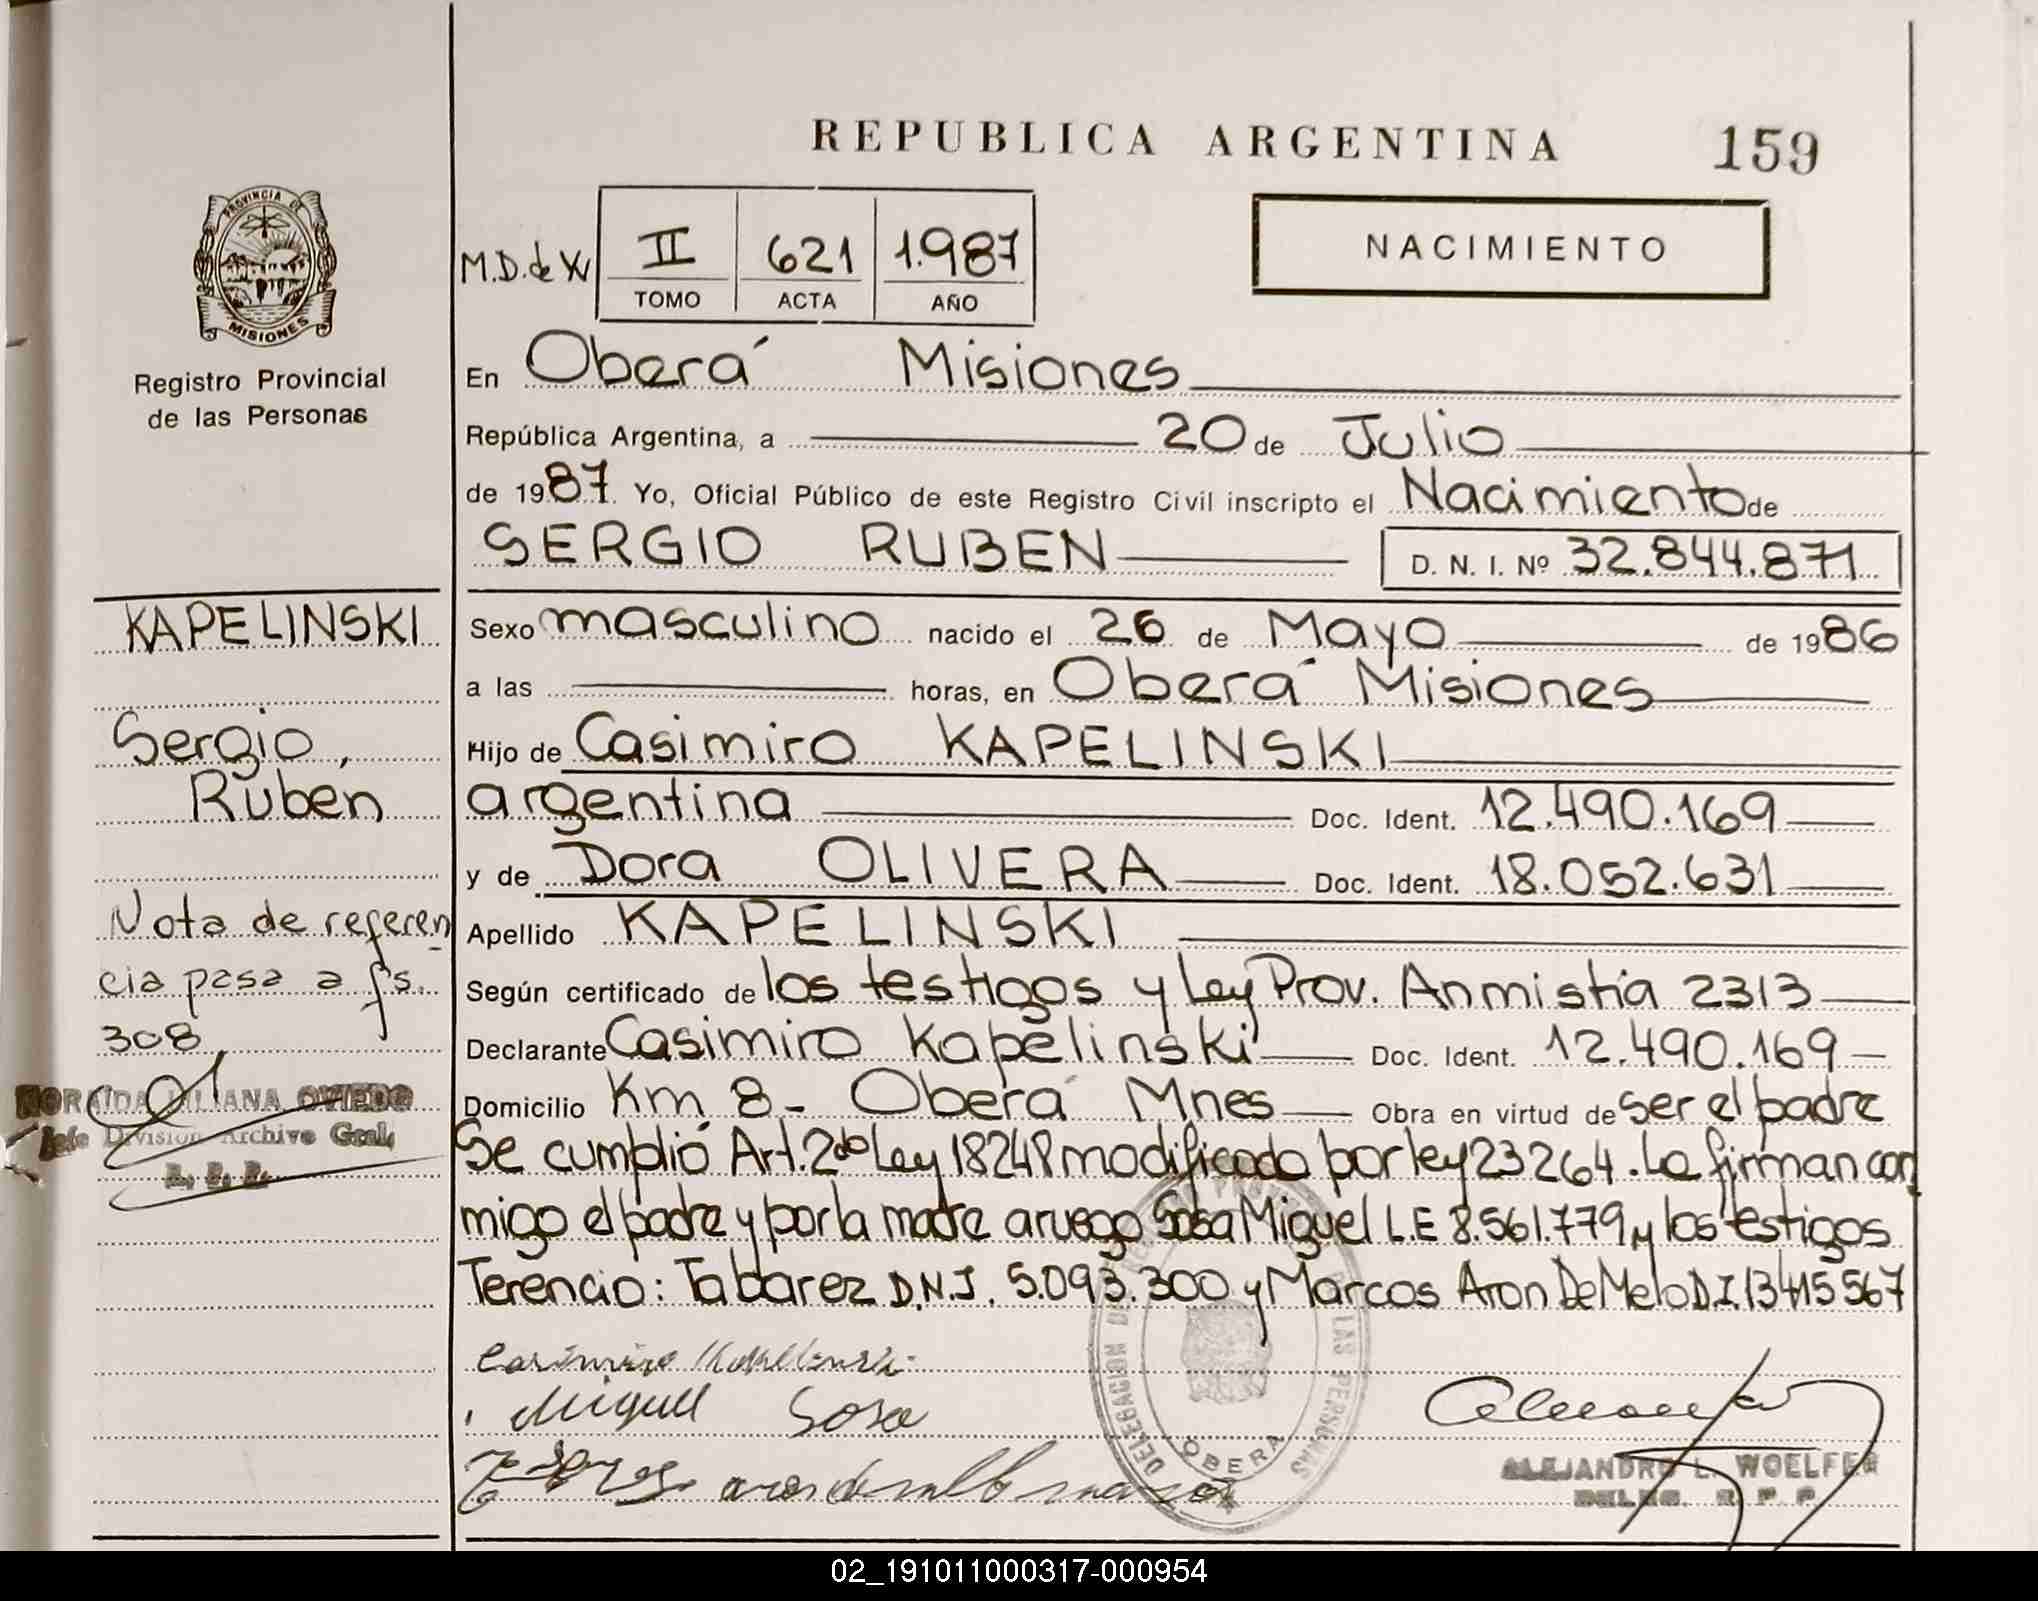 REPUBLICA ARGENTINA 159
PROVINCIA DE
MISIONES
Registro Provincial
de las Personas
NACIMIENTO
M.D. de W II 621 1.987
TOMO ACTA AÑO
En Oberá Misiones
República Argentina, a 20 de Julio
de 1987. Yo, Oficial Público de este Registro Civil inscripto el Nacimiento de
SERGIO RUBEN D. N. I. Nº 32.844.871
KAPELINSKI
Sergio,
Ruben
Nota de referen
cia pasa a fs.
308
OVIEDO
Jefe División Archivo Gral.
R. P. P.
Sexo masculino nacido el 26 de Mayo de 1986
a las horas, en Oberá Misiones
Hijo de Casimiro KAPELINSKI
argentina Doc. Ident. 12.490.169
y de Dora OLIVERA Doc. Ident. 18.052.631
Apellido KAPELINSKI
Según certificado de los testigos y Ley Prov. Anmistía 2313
Declarante Casimiro Kapelinski Doc. Ident. 12.490.169
Domicilio Km 8- Oberá Mnes Obra en virtud de ser el padre
Se cumplió Art. 2do Ley 18248 modificado por ley 23264. La firman con
migo el padre y por la madre a ruego Sosa Miguel L.E 8.561.779 y los testigos
Terencio: Tabarez D.N.I. 5.093.300 y Marcos Aron De Melo D.I. 13415567
Casimiro Kapelinski
Miguel Sosa
DELEGACION DE LAS PERSONAS
OBERA
ALEJANDRO L. WOELFER
DELEG. R. P. P.
02_191011000317-000954